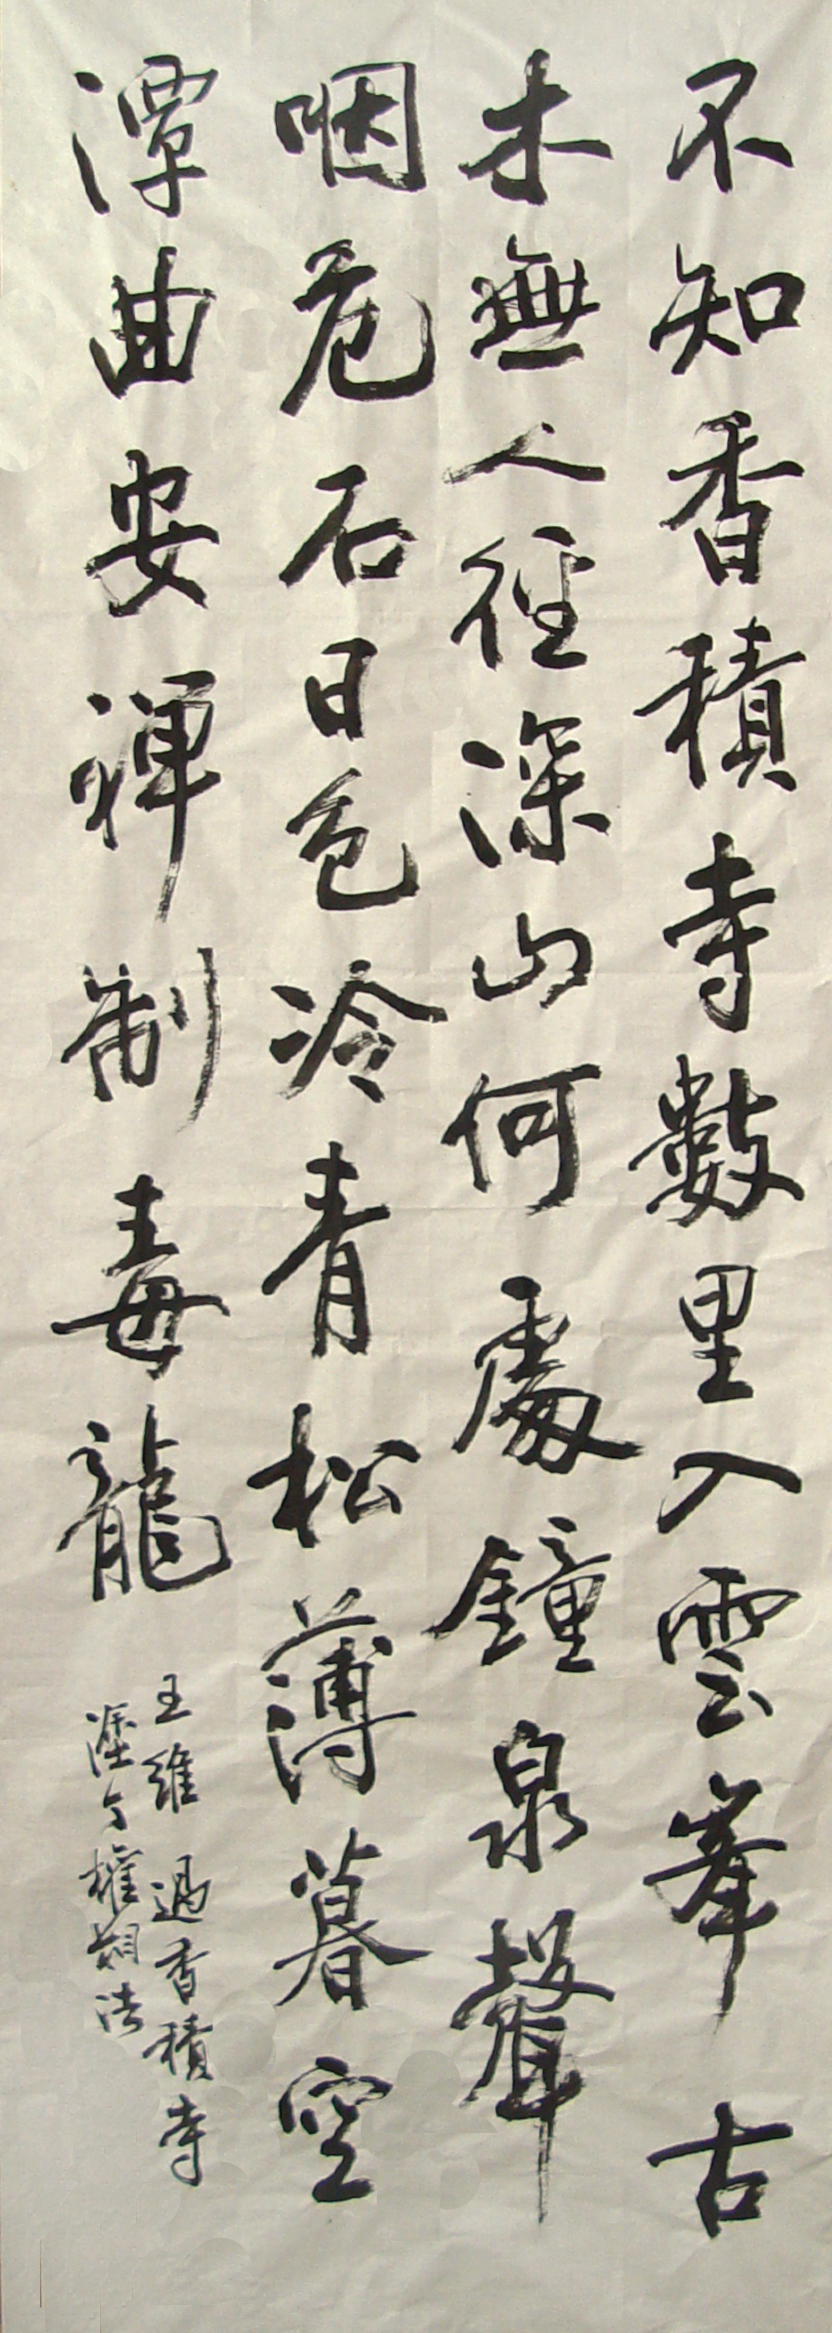 不知香積寺數里入雲峯古
木無人徑深山何處鐘泉聲
咽危石日色冷青松薄暮空
潭曲安禪制毒龍
王維 過香積寺